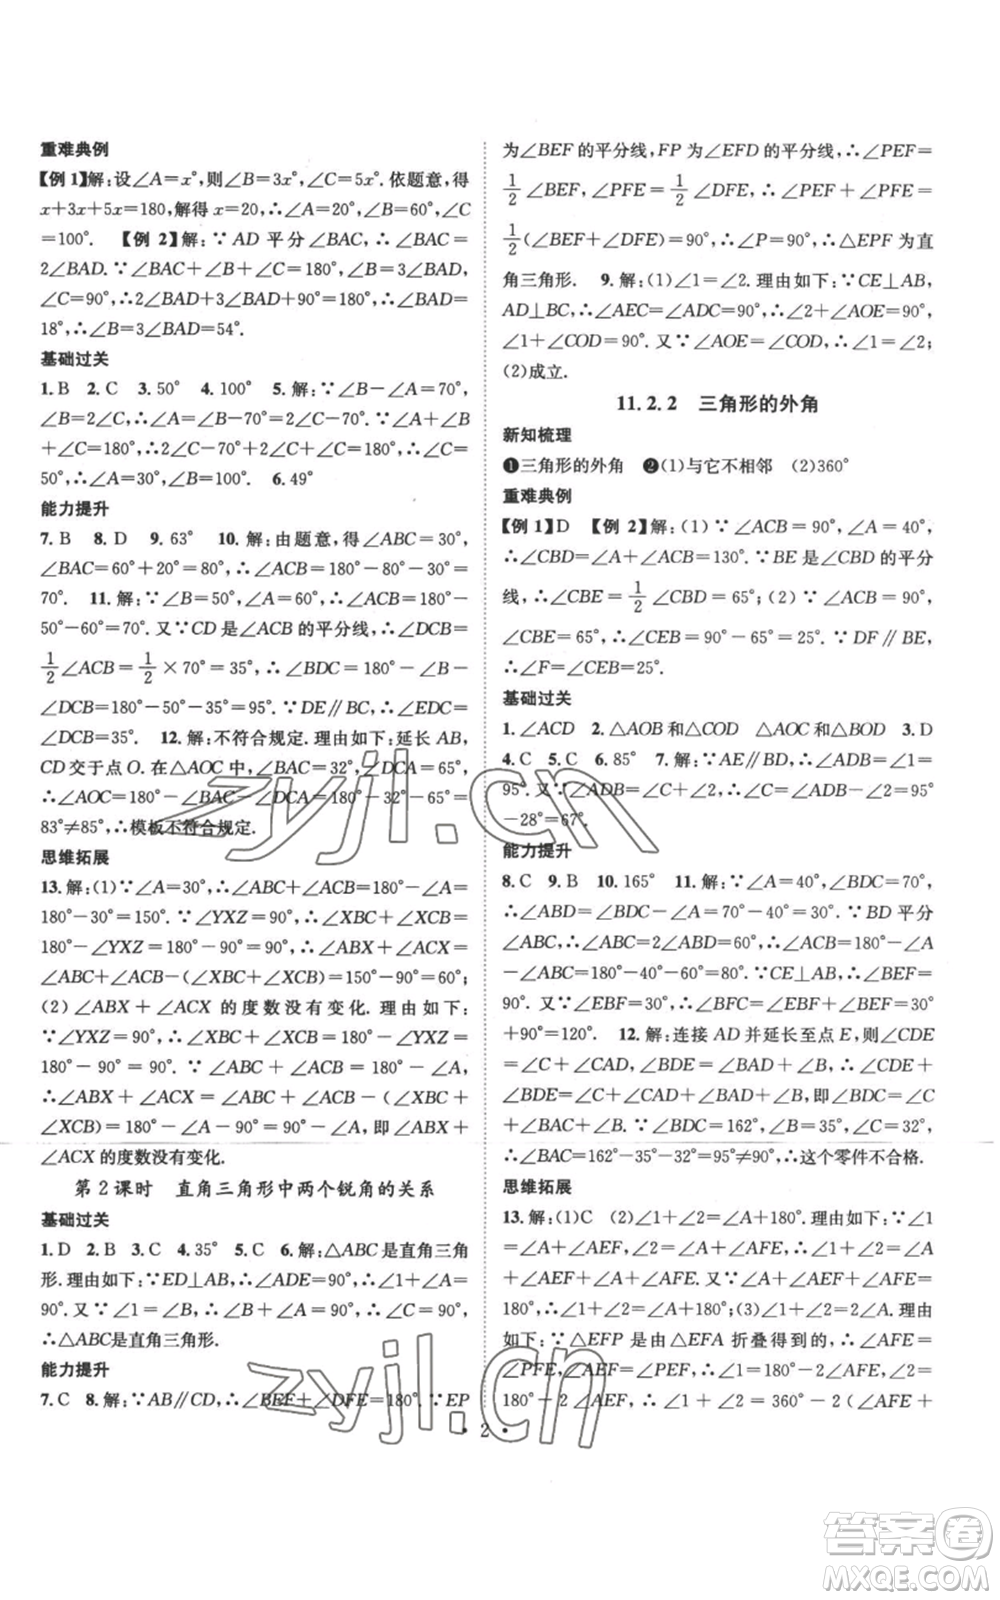 重难典例
【例 1】解:设∠A=x°,则∠B=3x°,∠C=5x°. 依题意,得
x+3x+5x=180,解得 x=20,∴∠A=20°,∠B=60°,∠C
=100°. 【例 2】解:∵ AD 平分∠BAC,∴∠BAC=
2∠BAD. ∵∠BAC+∠B+∠C=180°,∠B=3∠BAD,
∠C=90°,∴2∠BAD+3∠BAD+90°=180°,∴∠BAD=
18°,∴∠B=3∠BAD=54°.
基础过关
1. B 2. C 3. 50° 4. 100° 5. 解:∵∠B-∠A=70°,
∠B=2∠C,∴∠A=∠B-70°=2∠C-70°. 又∵∠A+
∠B+∠C=180°,∴2∠C-70°+2∠C+∠C=180°,∴∠C=
50°,∴∠A=30°,∠B=100°. 6. 49°
能力提升
7. B 8. D 9. 63° 10. 解:由题意,得∠ABC=30°,
∠BAC=60°+20°=80°,∴∠C=180°-80°-30°=
70°. 11. 解:∵∠B=50°,∠A=60°,∴∠ACB=180°-
50°-60°=70°. 又∵CD 是∠ACB 的平分线,∴∠DCB=
1/2∠ACB=1/2×70°=35°,∴∠BDC=180°-∠B-
∠DCB=180°-50°-35°=95°. ∵DE∥BC,∴∠EDC=
∠DCB=35°. 12. 解:不符合规定. 理由如下:延长 AB,
CD 交于点 O. 在△AOC 中,∠BAC=32°,∠DCA=65°,
∴∠AOC=180°-∠BAC-∠DCA=180°-32°-65°=
83°≠85°,∴模板不符合规定.
思维拓展
13. 解:(1)∵∠A=30°,∴∠ABC+∠ACB=180°-∠A=
180°-30°=150°. ∵∠YXZ=90°,∴∠XBC+∠XCB=
180°-∠YXZ=180°-90°=90°,∴∠ABX+∠ACX=
∠ABC+∠ACB-(∠XBC+∠XCB)=150°-90°=60°;
(2)∠ABX+∠ACX 的度数没有变化. 理由如下:
∵∠YXZ=90°,∴∠XBC+∠XCB=180°-∠YXZ=
180°-90°=90°. ∵∠ABC+∠ACB=180°-∠A,
∴∠ABX+∠ACX=∠ABC+∠ACB-(∠XBC+
∠XCB)=180°-∠A-90°=90°-∠A,即∠ABX+
∠ACX 的度数没有变化.
第 2 课时 直角三角形中两个锐角的关系
基础过关
1. D 2. B 3. C 4. 35° 5. C 6. 解:△ABC是直角三角
形. 理由如下:∵ED⊥AB,∴∠ADE=90°,∴∠1+∠A=
90°. 又∵∠1=∠B,∴∠B+∠A=90°,∴∠C=90°,
∴△ABC是直角三角形.
能力提升
7. C 8. 解:∵AB∥CD,∴∠BEF+∠DFE=180°. ∵EP
为∠BEF 的平分线,FP 为∠EFD 的平分线,∴∠PEF=
1/2∠BEF,∠PFE=1/2∠DFE,∴∠PEF+∠PFE=
1/2(∠BEF+∠DFE)=90°,∴∠P=90°,∴△EPF 为直
角三角形. 9. 解:(1)∠1=∠2. 理由如下:∵CE⊥AB,
AD⊥BC,∴∠AEC=∠ADC=90°,∴∠2+∠AOE=90°,
∠1+∠COD=90°. 又∵∠AOE=∠COD,∴∠1=∠2;
(2)成立.
11. 2. 2 三角形的外角
新知梳理
❶三角形的外角 ❷(1)与它不相邻 (2)360°
重难典例
【例 1】D 【例 2】解:(1)∵∠ACB=90°,∠A=40°,
∴∠CBD=∠A+∠ACB=130°. ∵BE 是∠CBD 的平分
线,∴∠CBE=1/2∠CBD=65°;(2)∵∠ACB=90°,
∠CBE=65°,∴∠CEB=90°-65°=25°. ∵DF∥BE,
∴∠F=∠CEB=25°.
基础过关
1. ∠ACD 2. △AOB 和△COD △AOC 和△BOD 3. D
4. C 5. C 6. 85° 7. 解:∵AE∥BD,∴∠ADB=∠1=
95°. 又∵∠ADB=∠C+∠2,∴∠C=∠ADB-∠2=95°
-28°=67°.
能力提升
8. C 9. B 10. 165° 11. 解:∵∠A=40°,∠BDC=70°,
∴∠ABD=∠BDC-∠A=70°-40°=30°. ∵BD 平分
∠ABC,∴∠ABC=2∠ABD=60°,∴∠ACB=180°-∠A
-∠ABC=180°-40°-60°=80°. ∵CE⊥AB,∴∠BEF=
90°. 又∵∠EBF=30°,∴∠BFC=∠EBF+∠BEF=30°
+90°=120°. 12. 解:连接 AD 并延长至点 E,则∠CDE
=∠C+∠CAD,∠BDE=∠BAD+∠B,∴∠CDE+
∠BDE=∠C+∠CAD+∠BAD+∠B,∴∠BDC=∠C
+∠BAC+∠B. ∵∠BDC=162°,∠B=35°,∠C=32°,
∴∠BAC=162°-35°-32°=95°≠90°,∴这个零件不合格.
思维拓展
13. 解:(1)C (2)∠1+∠2=∠A+180°. 理由如下:∵∠1
=∠A+∠AEF,∠2=∠A+∠AFE,∴∠1+∠2=∠A
+∠AEF+∠A+∠AFE. 又∵∠A+∠AEF+∠AFE=
180°,∴∠1+∠2=∠A+180°;(3)∠1+∠2=2∠A. 理由
如下:∵△EFP 是由△EFA 折叠得到的,∴∠AFE=
∠PFE,∠AEF=∠PEF,∴∠1=180°-2∠AFE,∠2=
180°-2∠AEF,∴∠1+∠2=360°-2(∠AFE+
• 2 •
zyjl.cn
zyjl.cn
答案卷
MXQE.COM